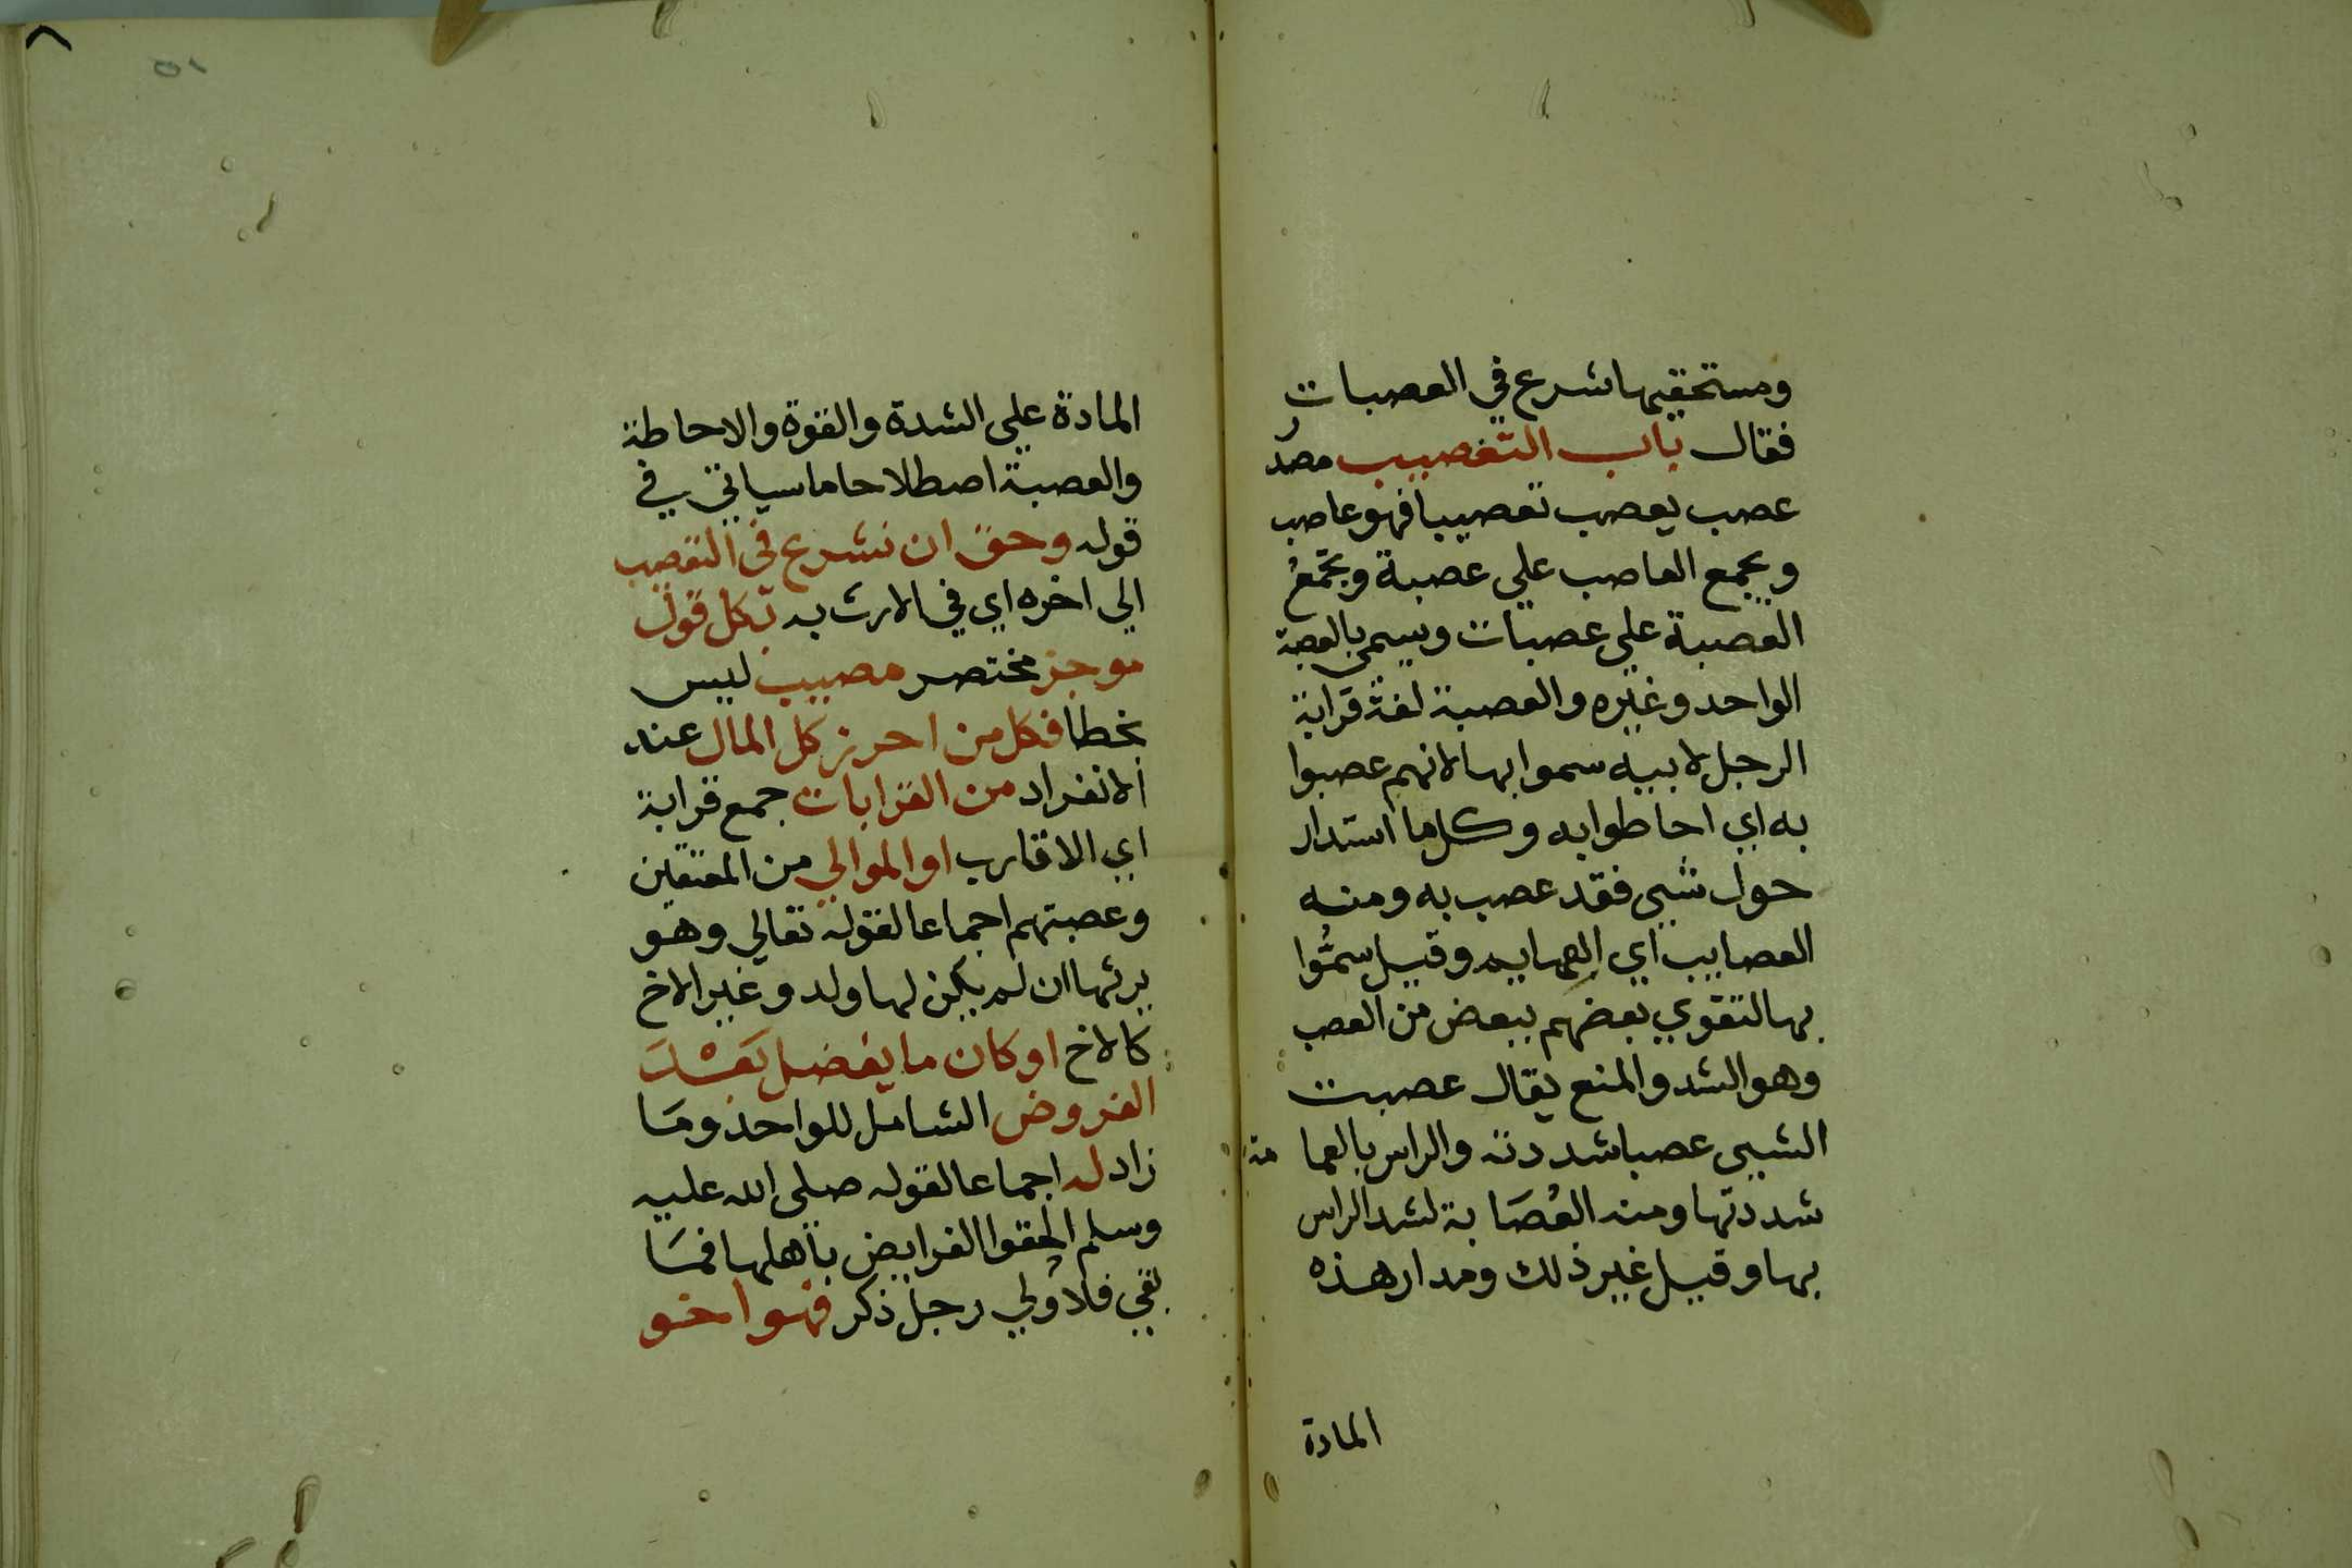 ومستحقيها شرع في العصبات
فقال باب التعصيب مصدر
عصب يعصب تعصيبا فهو عاصب
ويجمع العاصب علي عصبة وتجمع
العصبة علي عصبات ويسمي بالعصبة
الواحد وغيره والعصبة لغة قرابة
الرجل لابيه سموا بها لانهم عصبوا
به اي احاطوا به وكل ما استدار
حول شي فقد عصب به ومنه
العصايب اي العمايم وقيل سموا
بها لتقوي بعضهم ببعض من العصب
وهو الشد والمنع يقال عصبت
الشيي عصبا شددته والراس بالعمامة
شددتها ومنه العصابة لشد الراس
بها وقيل غير ذلك ومدار هذه
المادة
٨
٥١
المادة علي الشدة والقوة والاحاطة
والعصبة اصطلاحا ما سياتي في
قوله وحق ان نشرع في التعصيب
الي اخره اي في الارث به بكل قول
موجز مختصر مصيب ليس
بخطا فكل من احرز كل المال عند
الانفراد من القرابات جمع قرابة
اي الاقارب او الموالي من المعتقين
وعصبتهم اجماعا لقوله تعالي وهو
يرثها ان لم يكن لها ولد وغير الاخ
كالاخ او كان ما يفضل بَعْدَ
الفروض الشامل للواحد ومَا
زاد له اجماعا لقوله صلى الله عليه
وسلم الحقوا الفرايض باهلها فمَا
بقي فلاولي رجل ذكر فهو اخو